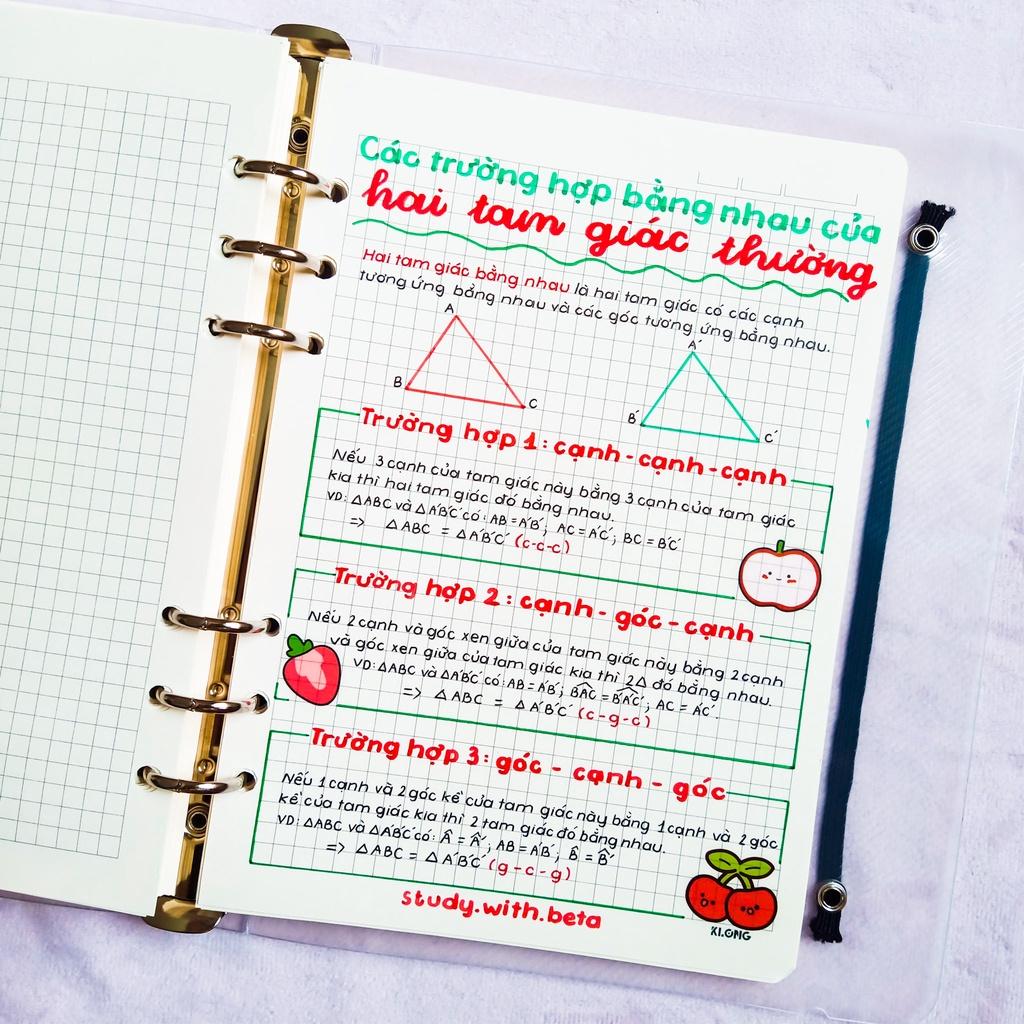 Các trường hợp bằng nhau của
hai tam giác thường
Hai tam giác bằng nhau là hai tam giác có các cạnh
tương ứng bằng nhau và các góc tương ứng bằng nhau.
A
B
C
A'
B'
C'
Trường hợp 1: cạnh - cạnh - cạnh
Nếu 3 cạnh của tam giác này bằng 3 cạnh của tam giác
kia thì hai tam giác đó bằng nhau.
VD: ∆ABC và ∆A'B'C' có: AB = A'B'; AC = A'C'; BC = B'C'
=> ∆ABC = ∆A'B'C' (c-c-c)
Trường hợp 2: cạnh - góc - cạnh
Nếu 2 cạnh và góc xen giữa của tam giác này bằng 2 cạnh
và góc xen giữa của tam giác kia thì 2∆ đó bằng nhau.
VD: ∆ABC và ∆A'B'C' có: AB = A'B'; B̂AC = B̂'A'C'; AC = A'C'.
=> ∆ABC = ∆A'B'C' (c-g-c)
Trường hợp 3: góc - cạnh - góc
Nếu 1 cạnh và 2 góc kề của tam giác này bằng 1 cạnh và 2 góc
kề của tam giác kia thì 2 tam giác đó bằng nhau.
VD: ∆ABC và ∆A'B'C' có: Â = Â'; AB = A'B'; B̂ = B̂'
=> ∆ABC = ∆A'B'C' (g-c-g)
study.with.beta
KLONG